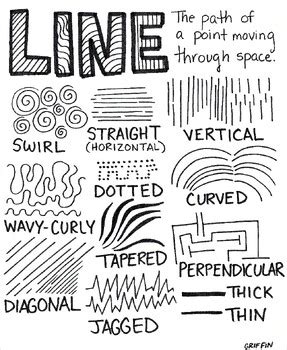 LINE
The path of
a point moving
through space.
SWIRL
STRAIGHT
(HORIZONTAL)
VERTICAL
WAVY-CURLY
DOTTED
CURVED
TAPERED
PERPENDICULAR
DIAGONAL
JAGGED
THICK
THIN
GRIFFIN